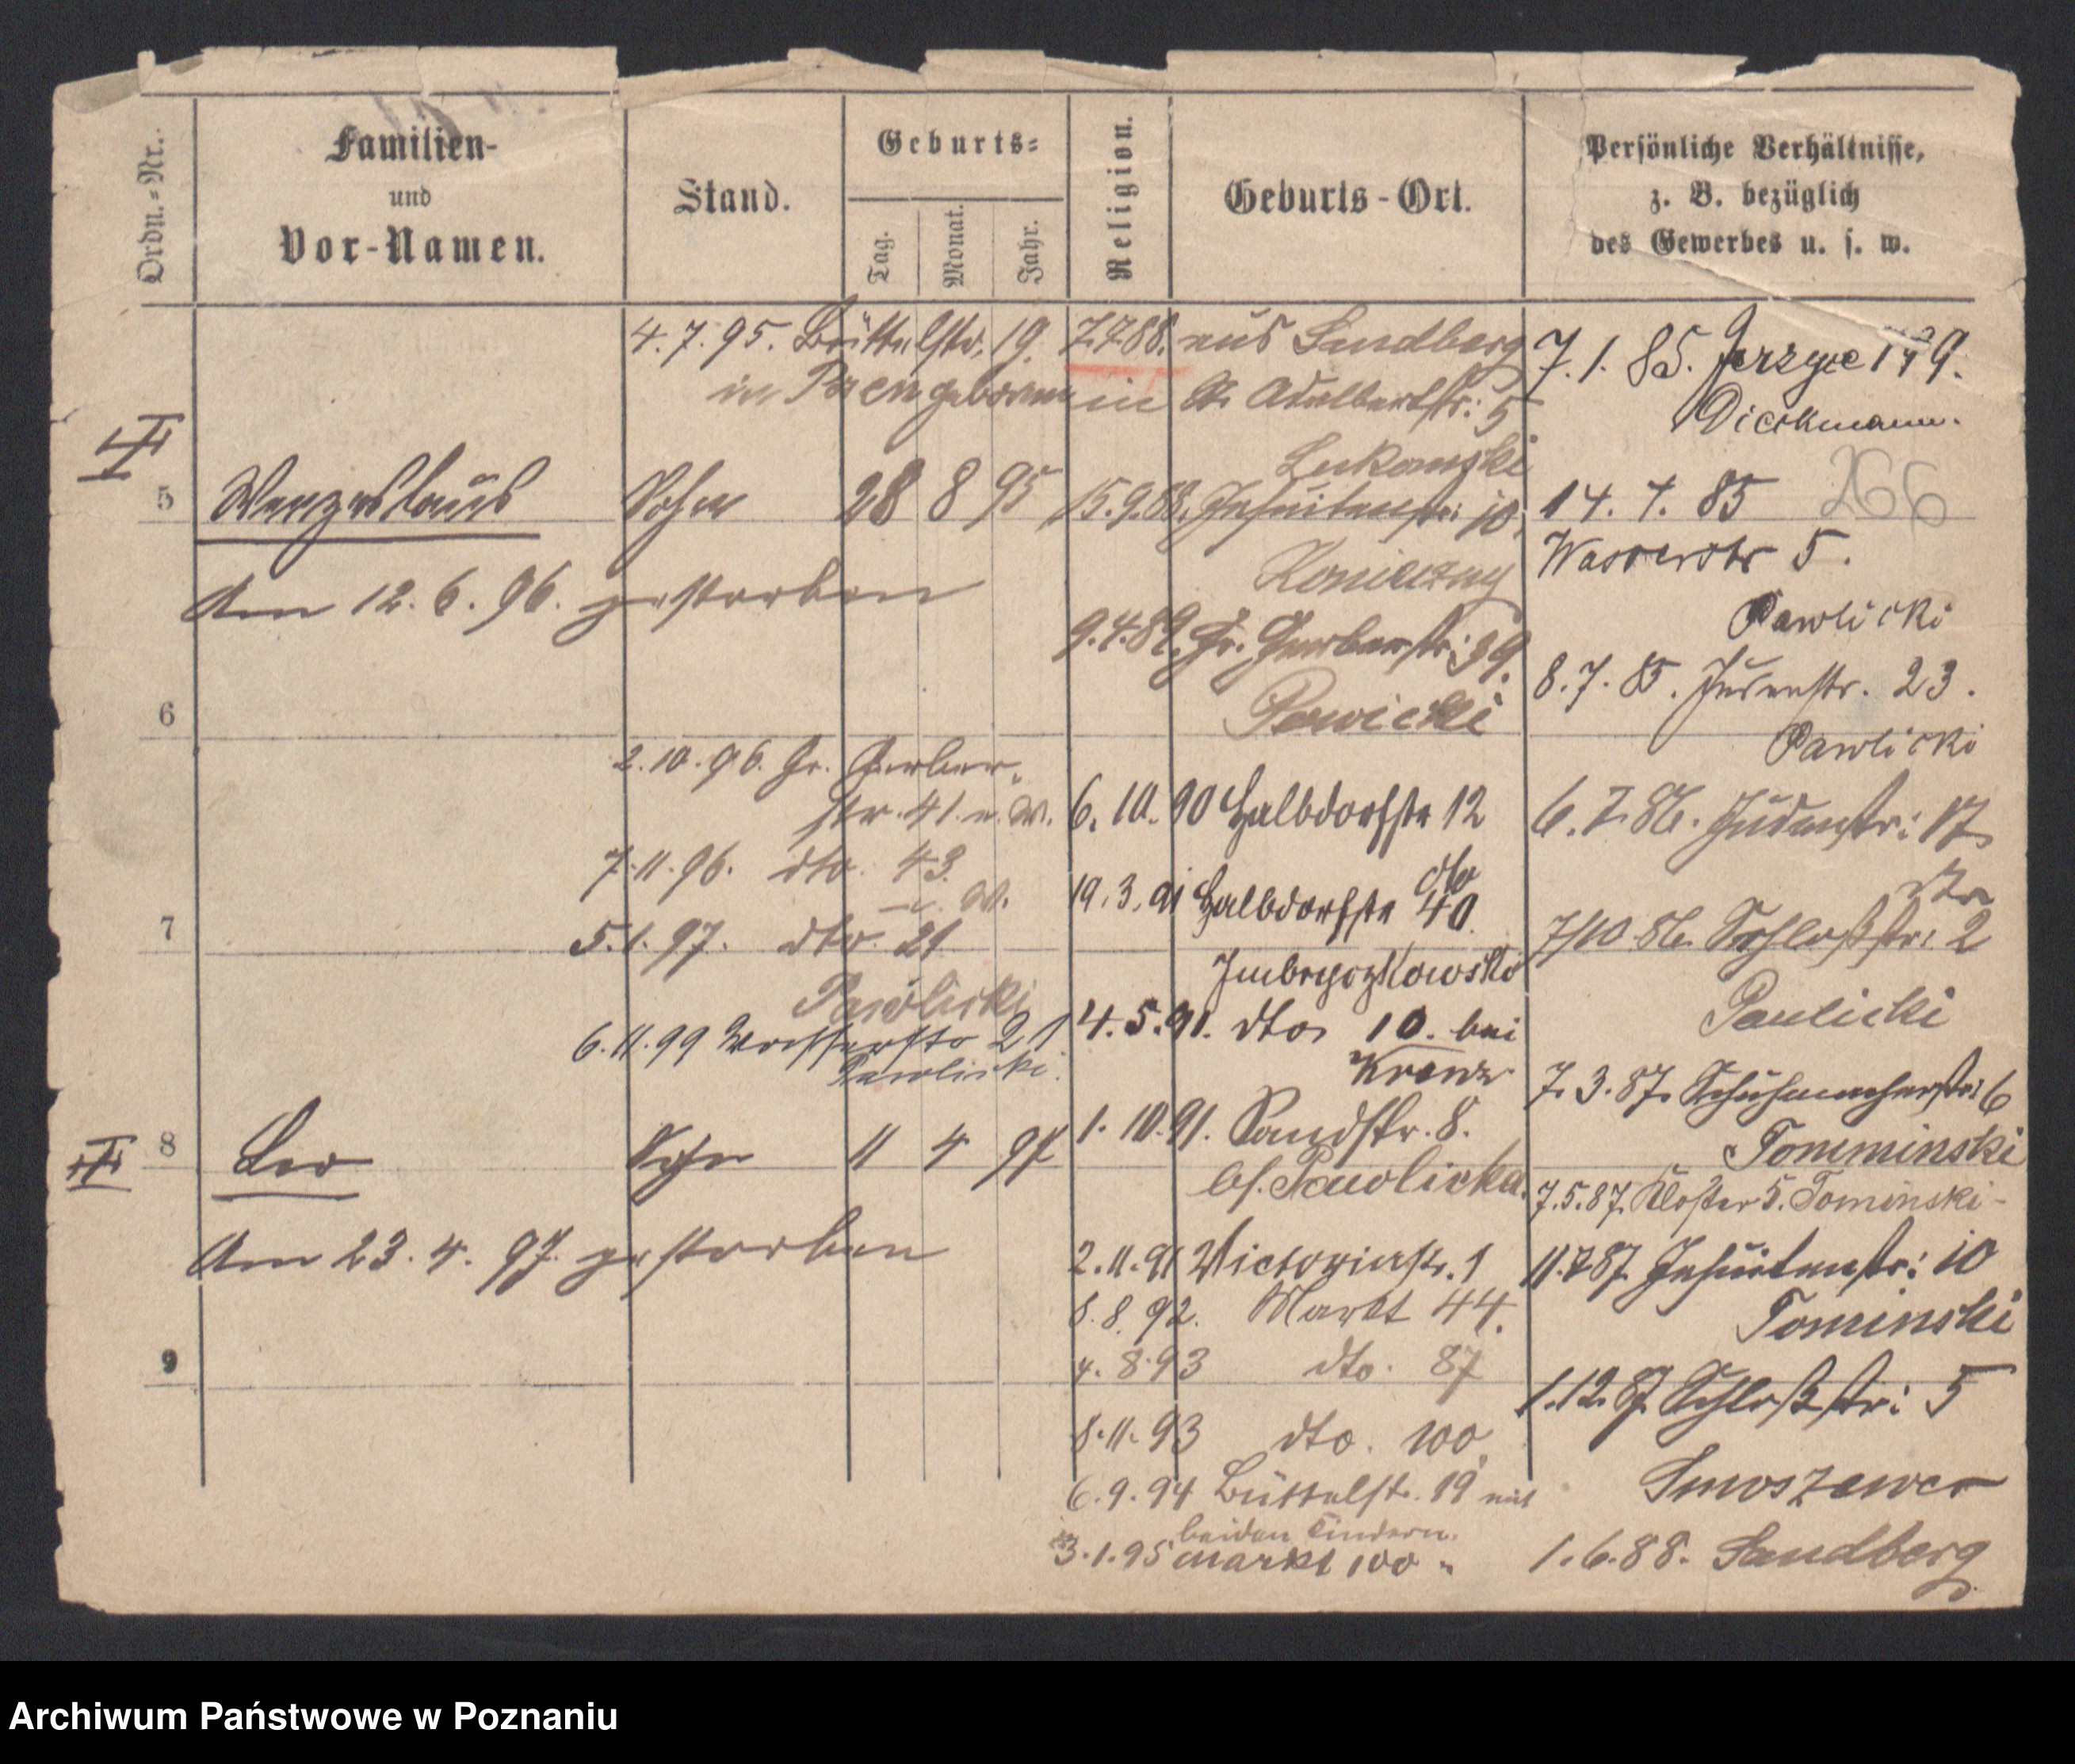 Ordn.-Nr.
Familien-
und
Vor-Namen.
Stand.
Geburts-
Tag.
Monat.
Jahr.
Religion.
Geburts-Ort.
Persönliche Verhältnisse,
z. B. bezüglich
des Gewerbes u. s. w.
4.7.95. Büttelstr. 19.
in Posen geboren
II
5 Wenzeslaus Sohn 28 8 95
Am 12.6.96. gestorben
6
2.10.96. Gr. Gerber-
str. 41. u. W.
7.11.96. dto. 43.
W.
7
5.1.97. dto. 21
Pawlicki
6.11.99 Wasserstr 21
Pawlicki.
III
8 Leo Sohn 11 4 97
Am 23.4.97. gestorben
9
7.7.88. aus Sandberg
in St. Adalbertstr. 5
Lukomski
15.9.88. Jesuitenstr. 10.
Konieczny
9.4.89. Gr. Gerberstr. 39.
Pawicki
6.10.90 Halbdorfstr 12
dto
19.3.91 Halbdorfstr 40.
4.5.91. dto. 10. bei
Kranz
1.10.91. Sandstr. 8.
bf. Pawlicka.
2.11.91 Victoriastr. 1
8.8.92. Markt 44.
4.8.93 dto. 87
8.11.93 dto. 100.
6.9.94 Büttelstr. 19 mit
beiden Kindern.
3.1.95 Markt 100 "
7.1.85. Jerzyce 179.
Dieckmann.
266
14.4.85
Wasserstr 5.
Pawlicki
8.7.85. Judenstr. 23.
Pawlicki
6.7.86. Judenstr: 17
dto
7/10.86. Schloßstr: 2
Pawlicki
7.3.87. Schuhmacherstr: 6
Tomminski
7.5.87. Kloster 5. Tominski-
11.7.87. Jesuitenstr: 10
Tominski
1.12.87. Schloßstr: 5
1.6.88. Sandberg
Archiwum Państwowe w Poznaniu